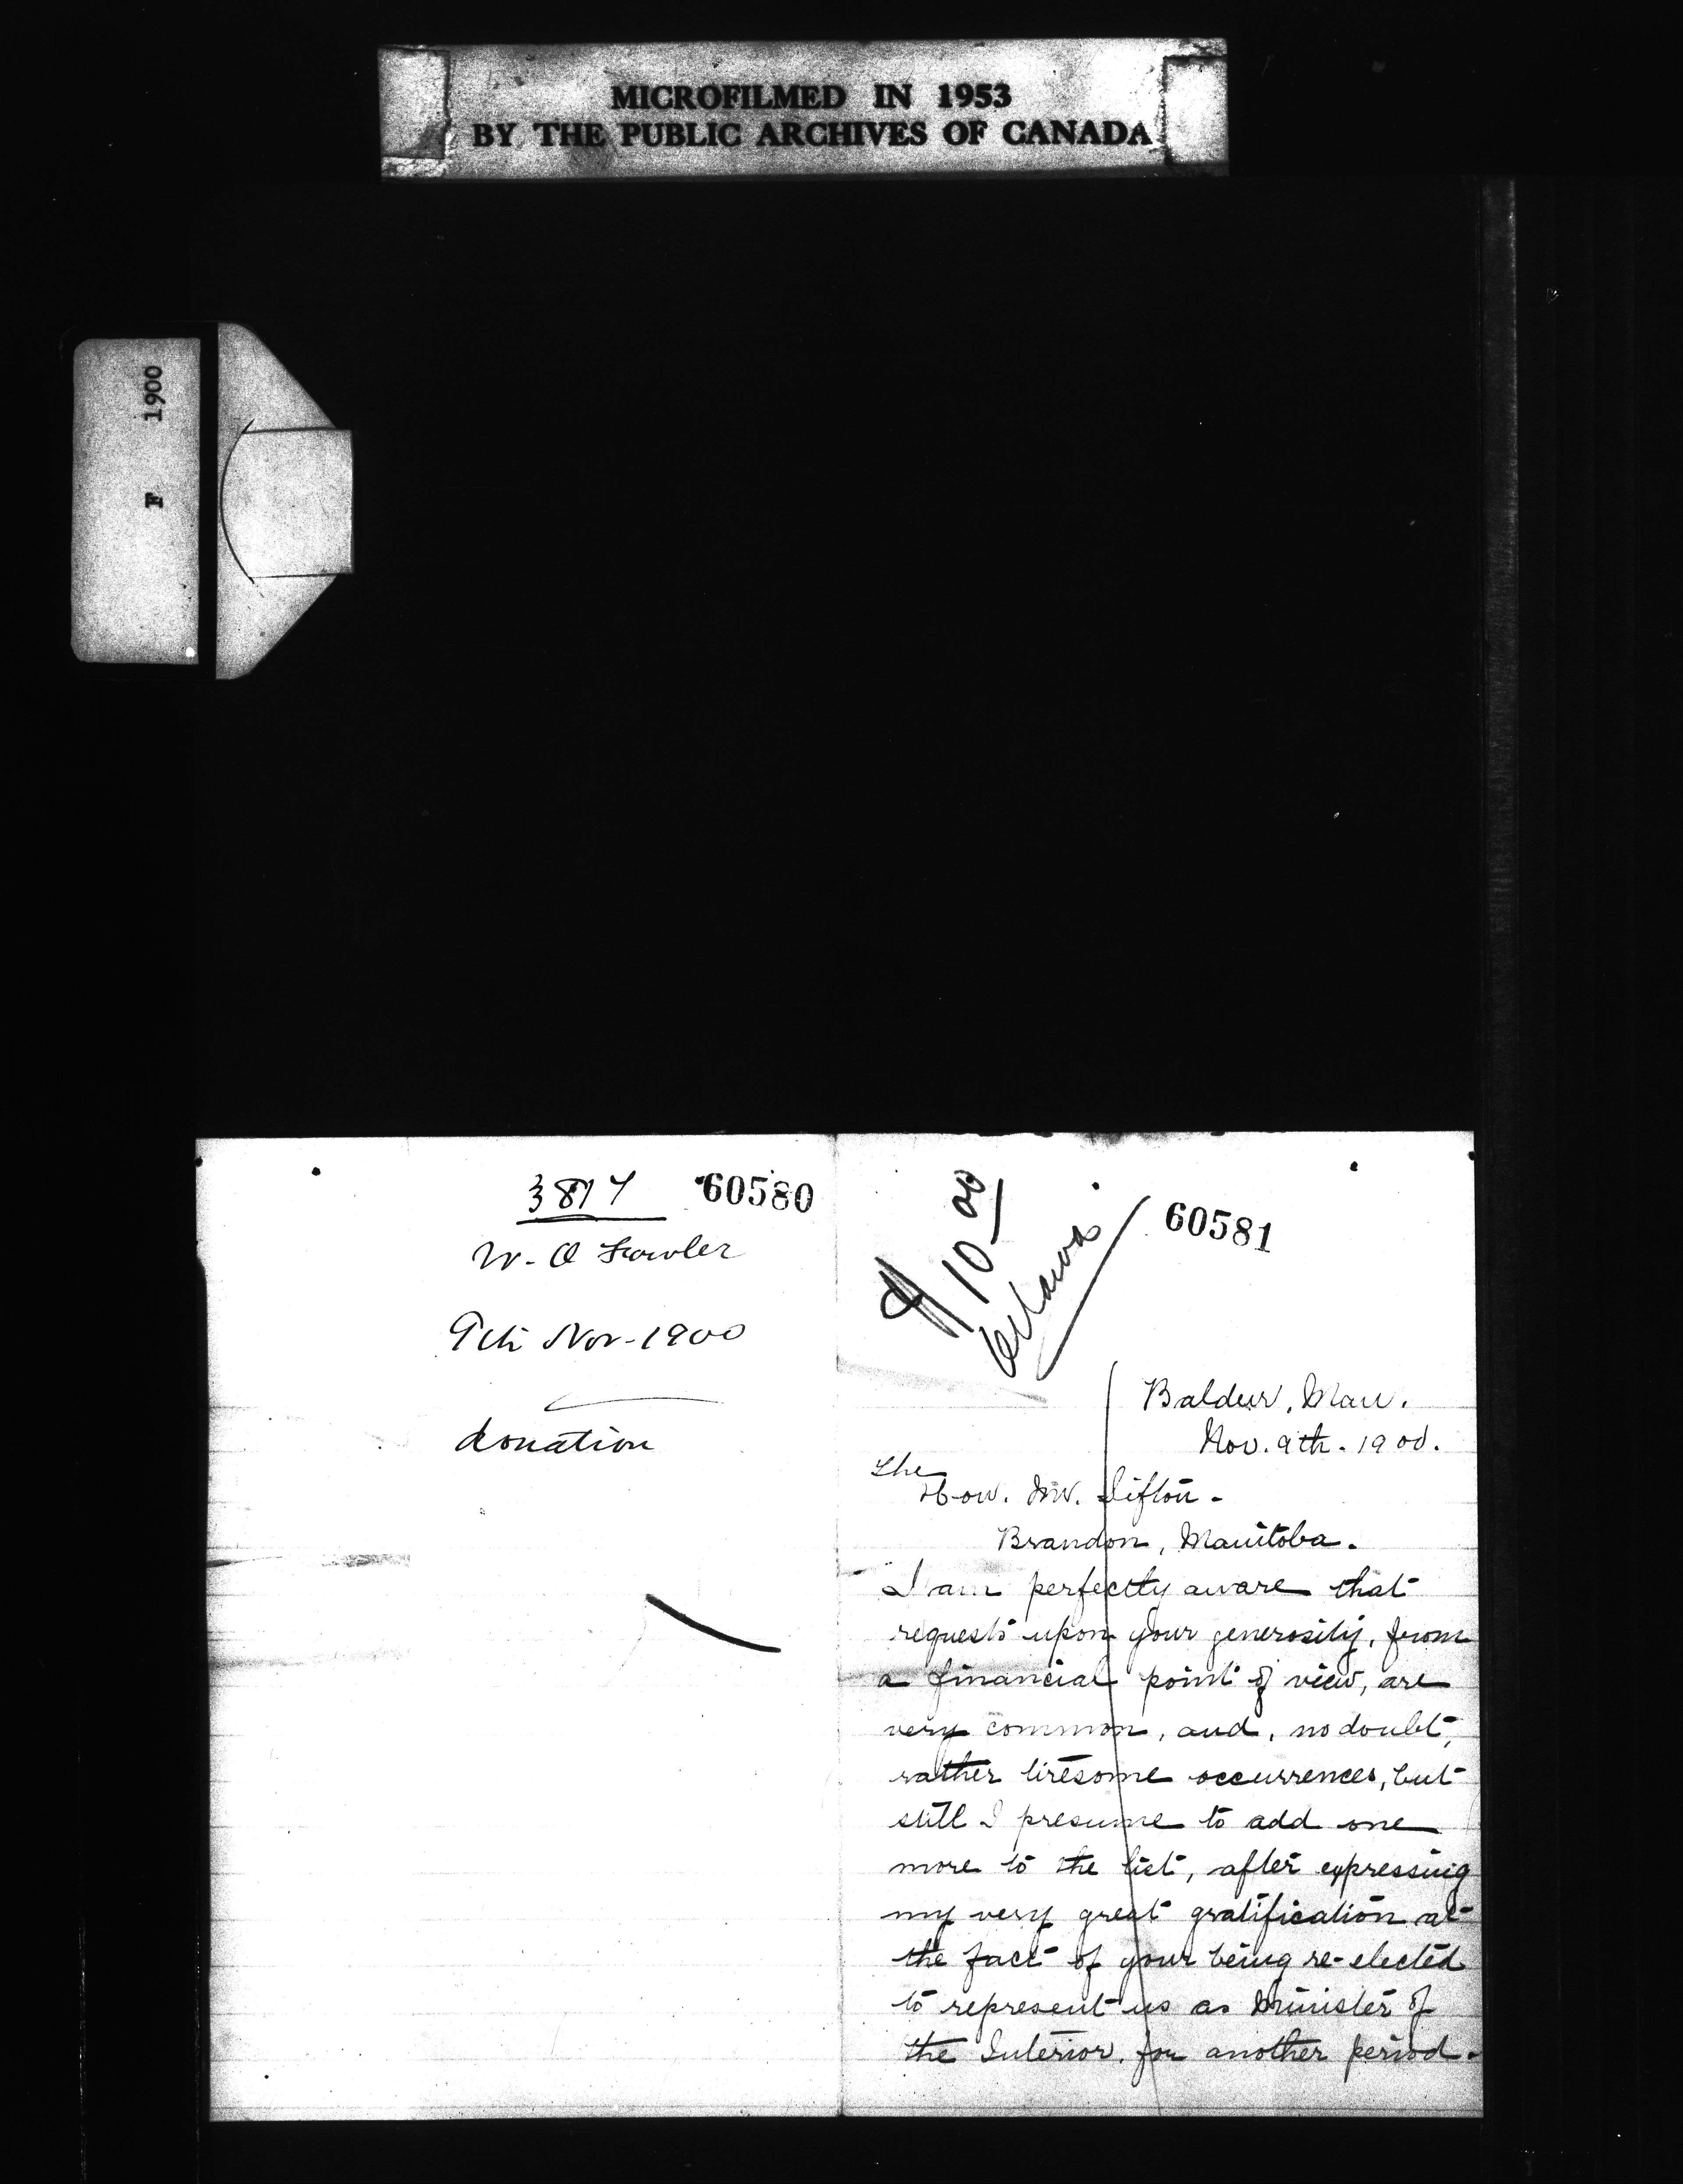 MICROFILMED IN 1953
BY THE PUBLIC ARCHIVES OF CANADA
F 1900
3817 60580
W. O Fowler
9th Nov - 1900
donation
$10.00
60581
Baldur, Man.
Nov. 9th - 1900.
The
Hon. Mr. Sifton -
Brandon, Manitoba.
I am perfectly aware that
requests upon your generosity, from
a financial point of view, are
very common, and, no doubt,
rather tiresome occurrences, but
still I presume to add one
more to the list, after expressing
my very great gratification at
the fact of your being re-elected
to represent us as Minister of
the Interior, for another period.